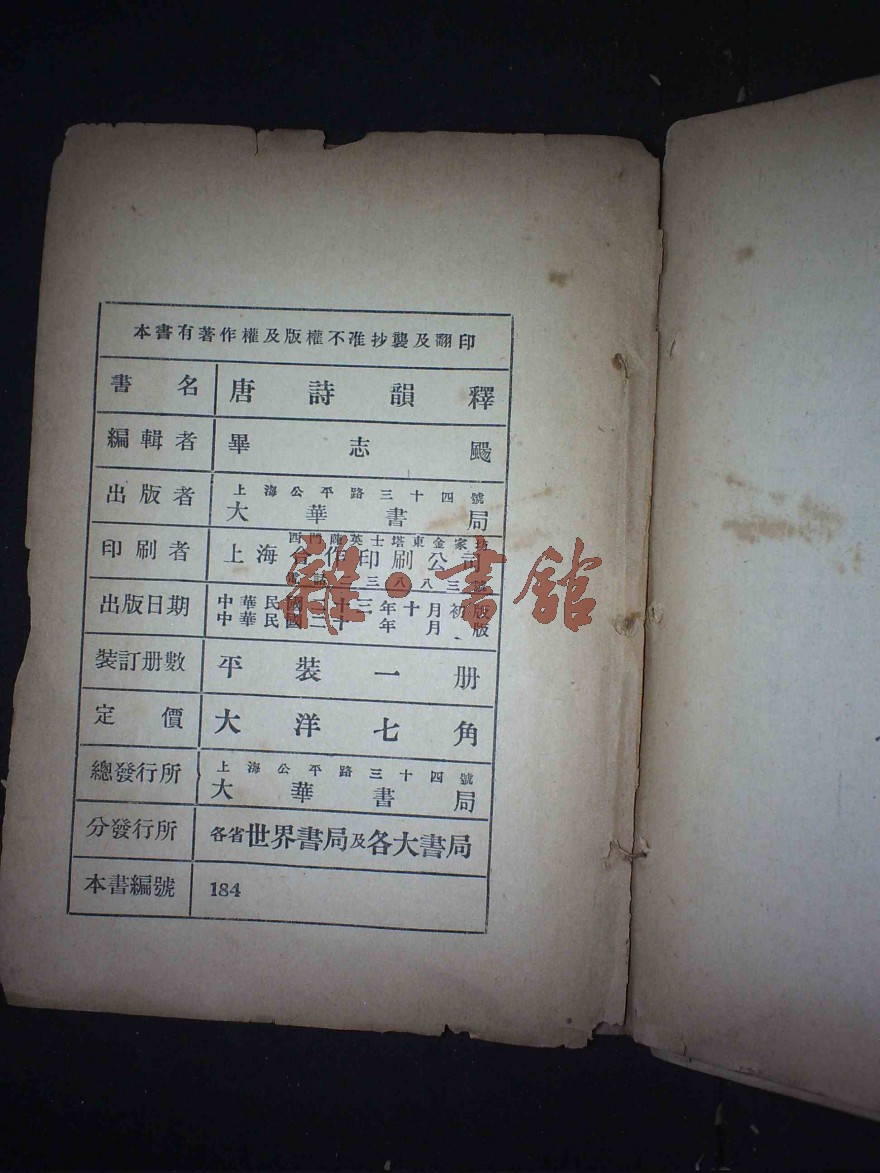 本書有著作權及版權不准抄襲及翻印
書名 唐詩韻釋
編輯者 畢志颺
出版者 上海公平路三十四號
大華書局
印刷者 西門 英士塔東金家坊
上海合作印刷公司
三八八三號
出版日期 中華民國二十三年十月初版
中華民國二十 年 月 版
裝訂册數 平裝一册
定價 大洋七角
總發行所 上海公平路三十四號
大華書局
分發行所 各省世界書局及各大書局
本書編號 184
雜·書館